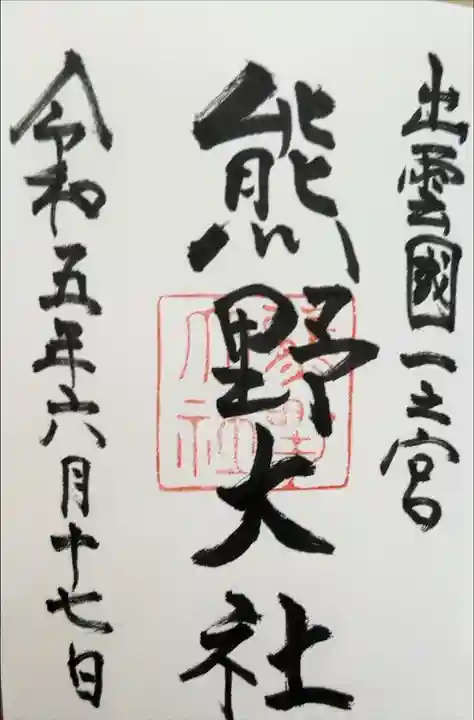 出雲國一之宮
熊野大社
熊野大社
令和五年六月十七日